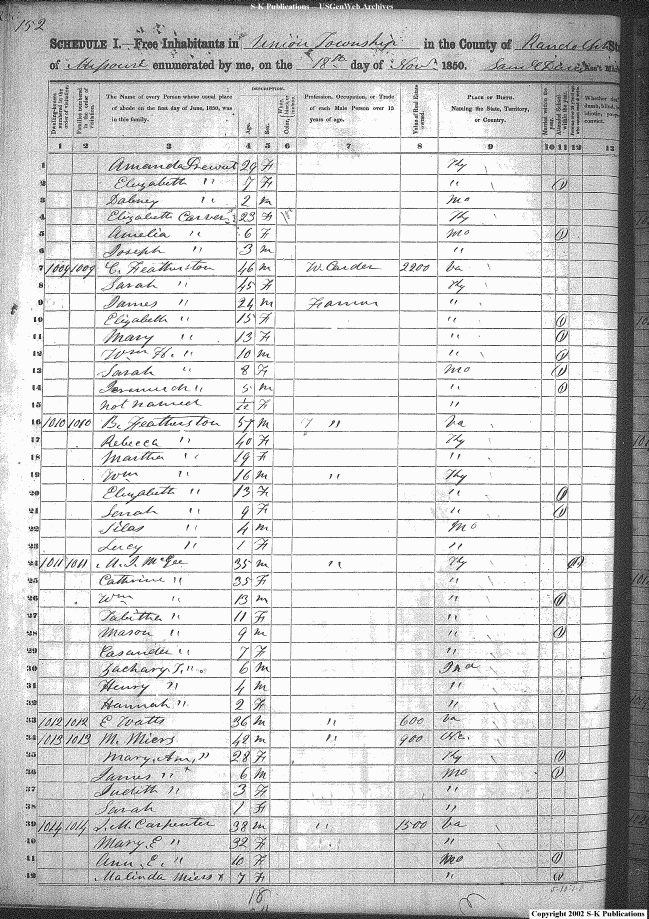 S-K Publications - USGenWeb Archives
152
SCHEDULE I. Free Inhabitants in Union Township in the County of Randolph
of Missouri enumerated by me, on the 18th day of Nov. 1850.
Dwelling-houses numbered in the order of visitation.
Families numbered in the order of visitation.
The Name of every Person whose usual place of abode on the first day of June, 1850, was in this family.
DESCRIPTION.
Age.
Sex.
Color,
Profession, Occupation, or Trade of each Male Person over 15 years of age.
Value of Real Estate owned.
PLACE OF BIRTH.
Naming the State, Territory, or Country.
Married within the year.
1 2 3 4 5 6 7 8 9 10 11 12 13
1 Amanda 29 F Ky
2 Elizabeth " 7 F " 1
3 Dabney " 2 m Mo
4 Elizabeth Carver 23 F Ky
5 Amelia " 6 F Mo 1
6 Joseph " 3 m "
7 1009 1009 C. Featherston 46 m W. Carder 2200 Va
8 Sarah " 45 F Ky
9 James " 24 m Farmer "
10 Elizabeth " 15 F " 1
11 Mary " 13 F " 1
12 Wm H. " 10 m " 1
13 Sarah " 8 F Mo 1
14 " 5 m " 1
15 not named F "
16 1010 1010 B. Featherston 57 m " Va
17 Rebecca " 40 F Ky
18 Martha " 19 F "
19 Wm " 16 m " Ky
20 Elizabeth " 13 F " 1
21 Sarah " 9 F " 1
22 Silas " 4 m Mo
23 Lucy " 1 F "
24 1011 1011 M. McGee 35 m " Ky 1
25 Cathrine " 35 F "
26 Wm " 13 m " 1
27 Tabitha " 11 F "
28 Mason " 9 m " 1
29 Casander " 7 F "
30 Zachary T. " 6 m Ind
31 Henry " 4 m "
32 Hannah " 2 F "
33 1012 1012 E Watts 36 m " 600 Va
34 1013 1013 M. Miers 42 m " 900 N.C.
35 Mary, Ann, " 28 F Ky 1
36 James " 6 m Mo 1
37 Judith " 3 F "
38 Sarah 1 F "
39 1014 1014 M. Carpenter 38 m " 1500 Va
40 Mary E " 32 F "
41 Ann, E. " 10 F Mo 1
42 Malinda Miers x 7 F " 1
18
Copyright 2002 S-K Publications